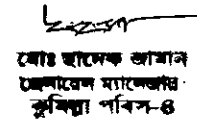 মোঃ ছালেক জামান
জেনারেল ম্যানেজার
কুমিল্লা পবিস-৪